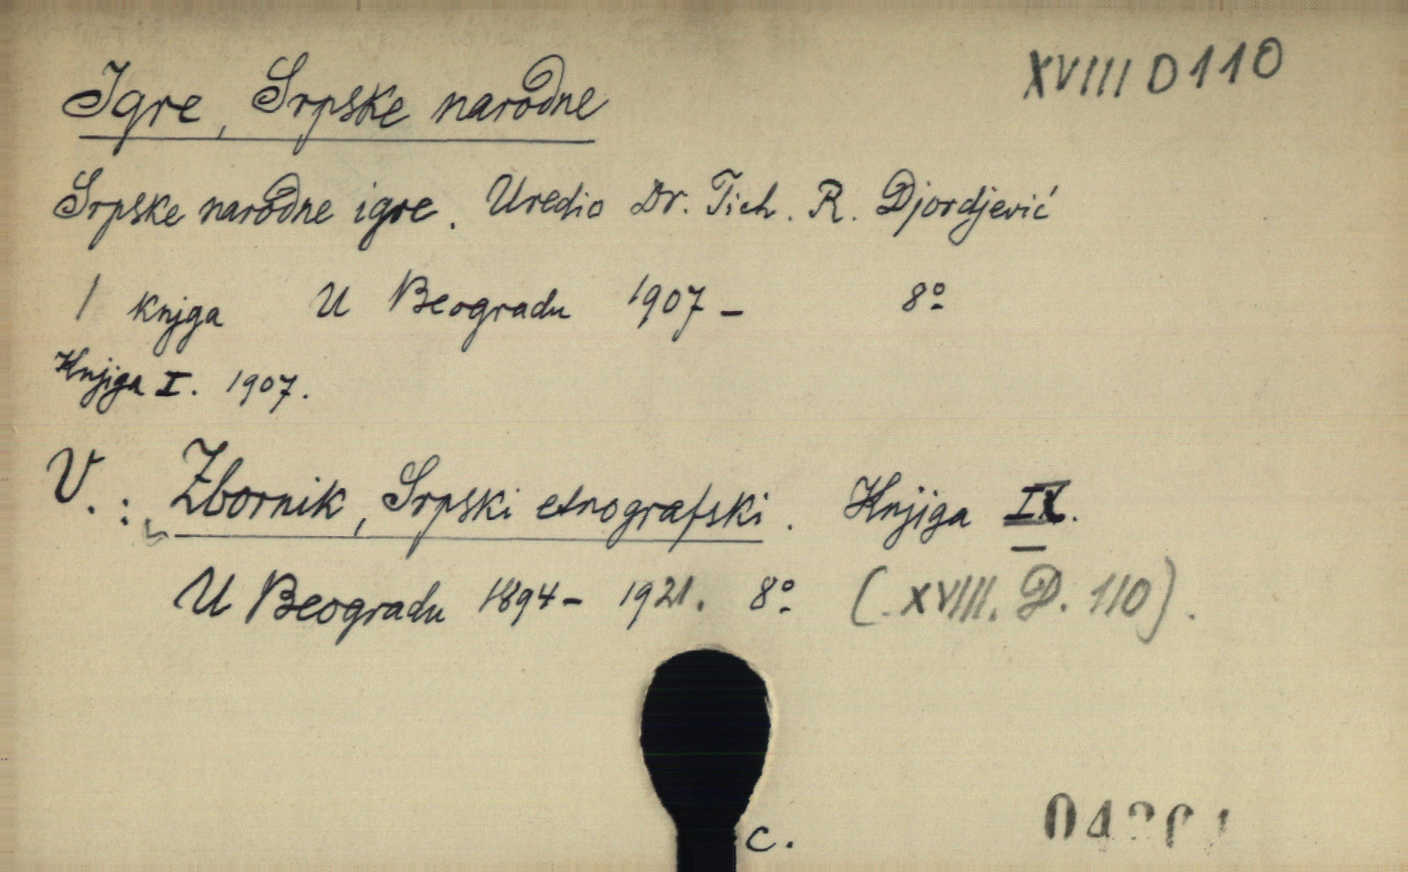 XVIII D 110
Igre, Srpske narodne
Srpske narodne igre. Uredio Dr. Tich. R. Djordjević
1 knjga U Beogradu 1907 - 8º
Knjiga I. 1907.
V. : Zbornik, Srpski etnografski. Knjiga IX.
U Beogradu 1894 - 1921. 8º (XVIII. D. 110).
c.